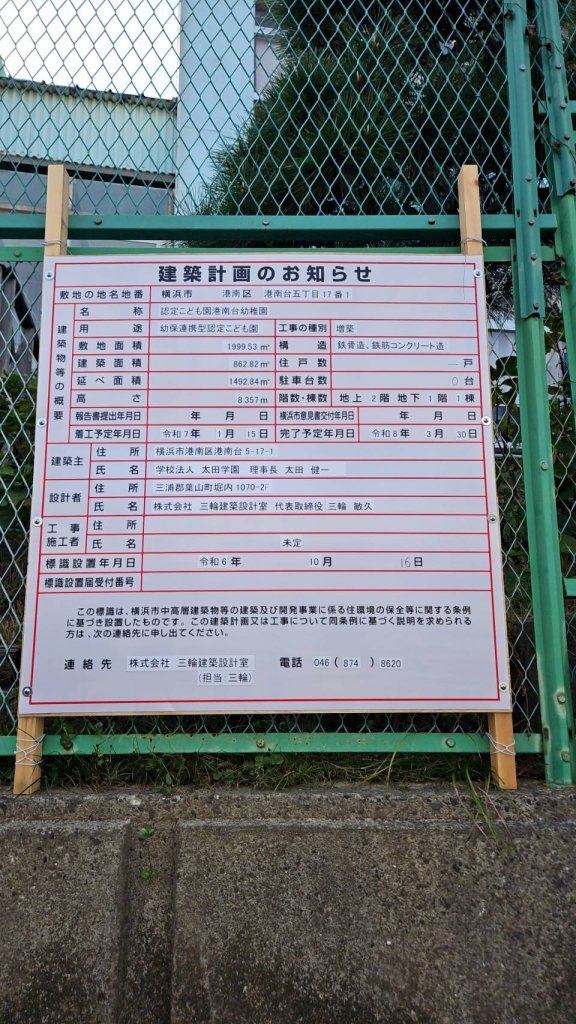 建築計画のお知らせ
敷地の地名地番 横浜市 港南区 港南台五丁目17番1
建築物等の概要
名称 認定こども園港南台幼稚園
用途 幼保連携型認定こども園 工事の種別 増築
敷地面積 1999.53㎡ 構造 鉄骨造、鉄筋コンクリート造
建築面積 862.82㎡ 住戸数 ―戸
延べ面積 1492.84㎡ 駐車台数 0台
高さ 8.357m 階数・棟数 地上2階地下1階1棟
報告書提出年月日 年 月 日 横浜市意見書交付年月日 年 月 日
着工予定年月日 令和7年 1月 15日 完了予定年月日 令和8年 3月 30日
建築主 住所 横浜市港南区港南台5-17-1
氏名 学校法人 太田学園 理事長 太田 健一
設計者 住所 三浦郡葉山町堀内1070-2F
氏名 株式会社 三輪建築設計室 代表取締役 三輪 敏久
工事施工者 住所
氏名 未定
標識設置年月日 令和6年 10月 16日
標識設置届受付番号
この標識は、横浜市中高層建築物等の建築及び開発事業に係る住環境の保全等に関する条例
に基づき設置したものです。この建築計画又は工事について同条例に基づく説明を求められる
方は、次の連絡先に申し出てください。
連絡先 株式会社 三輪建築設計室 電話 046(874)8620
(担当:三輪)